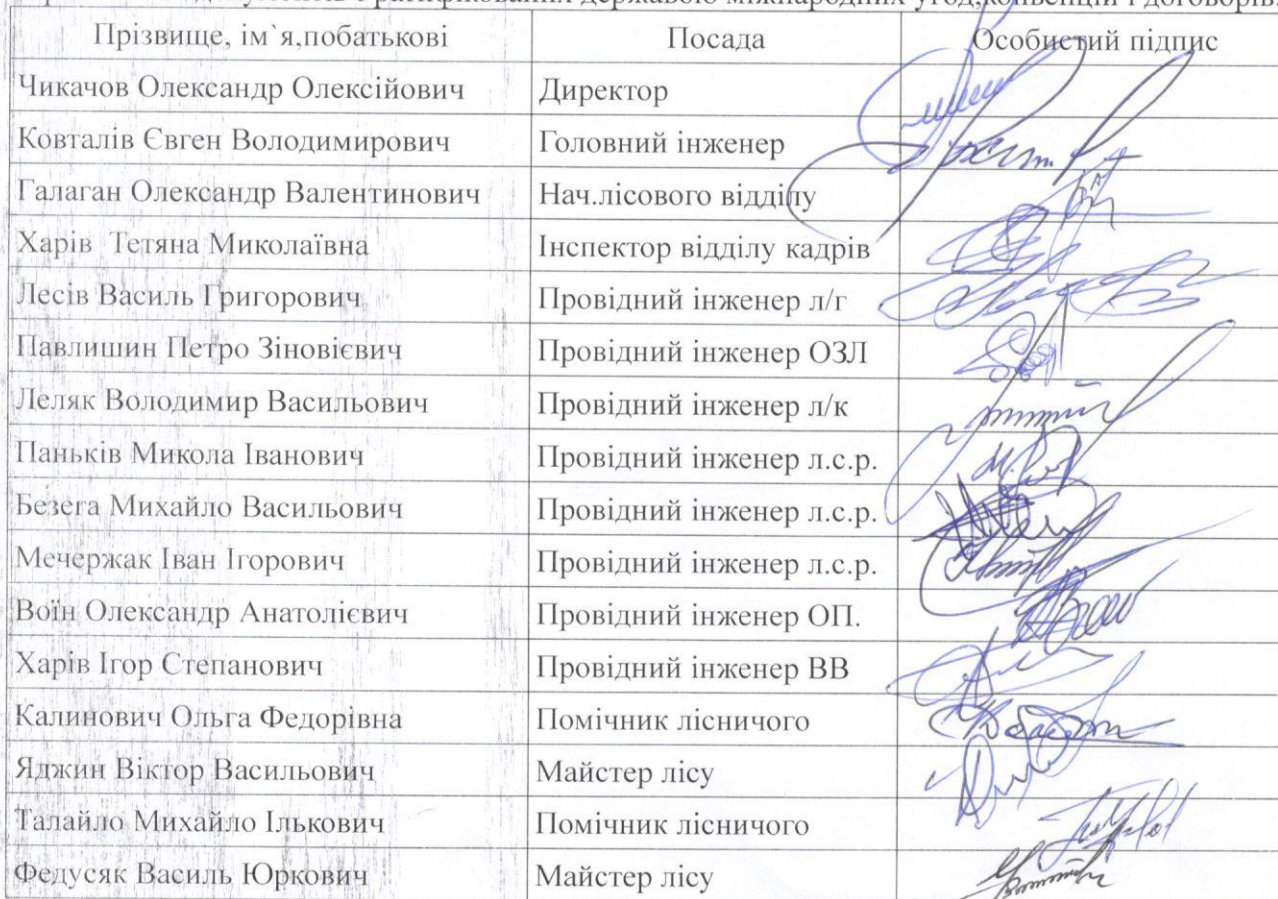 ратифікованих державою міжнародних угод,конвенцій і договорів.
Прізвище, ім`я,побатькові Посада Особистий підпис
Чикачов Олександр Олексійович Директор
Ковталів Євген Володимирович Головний інженер
Галаган Олександр Валентинович Нач.лісового відділу
Харів Тетяна Миколаївна Інспектор відділу кадрів
Лесів Василь Григорович Провідний інженер л/г
Павлишин Петро Зіновієвич Провідний інженер ОЗЛ
Леляк Володимир Васильович Провідний інженер л/к
Паньків Микола Іванович Провідний інженер л.с.р.
Безега Михайло Васильович Провідний інженер л.с.р.
Мечержак Іван Ігорович Провідний інженер л.с.р.
Воїн Олександр Анатолієвич Провідний інженер ОП.
Харів Ігор Степанович Провідний інженер ВВ
Калинович Ольга Федорівна Помічник лісничого
Яджин Віктор Васильович Майстер лісу
Талайло Михайло Ількович Помічник лісничого
Федусяк Василь Юркович Майстер лісу